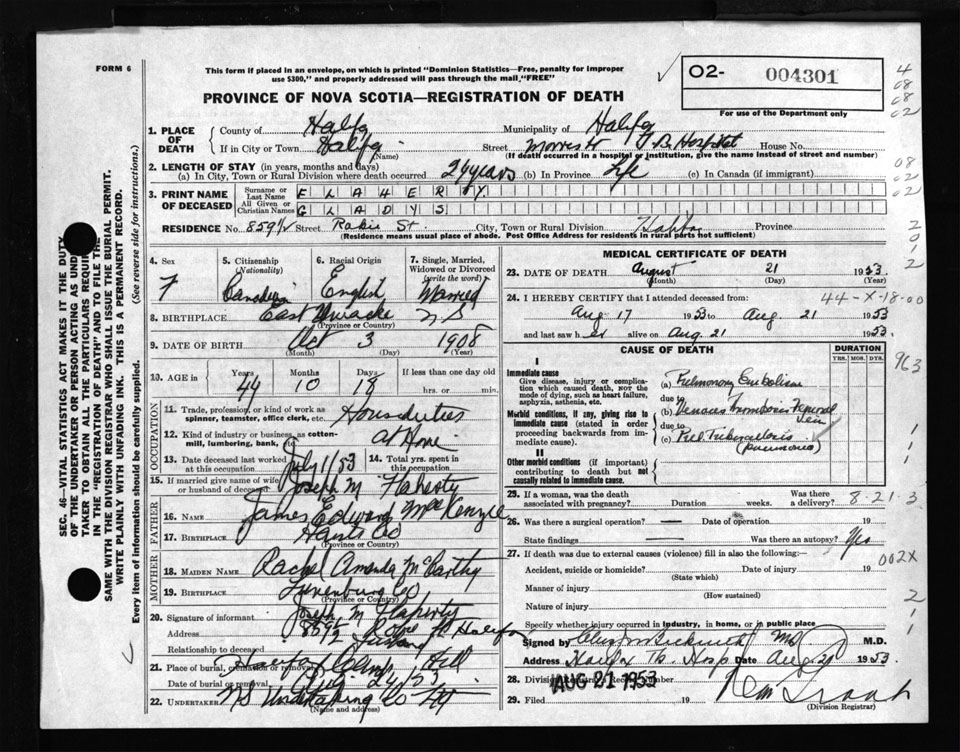 FORM 6
This form if placed in an envelope, on which is printed "Dominion Statistics—Free, penalty for improper
use $300," and properly addressed will pass through the mail "FREE"
PROVINCE OF NOVA SCOTIA—REGISTRATION OF DEATH
O2- 004301
For use of the Department only
4
08
08
02
08
02
02
2
0
1
2
SEC. 46—VITAL STATISTICS ACT MAKES IT THE DUTY
OF THE UNDERTAKER OR PERSON ACTING AS UNDER
TAKER TO OBTAIN ALL THE PARTICULARS REQUIRED
IN THE "REGISTRATION OF DEATH" AND TO FILE THE
SAME WITH THE DIVISION REGISTRAR WHO SHALL ISSUE THE BURIAL PERMIT.
WRITE PLAINLY WITH UNFADING INK. THIS IS A PERMANENT RECORD.
Every item of information should be carefully supplied. (See reverse side for instructions.)
1. PLACE OF DEATH
County of Halifax Municipality of Halifax
If in City or Town Halifax (Name) Street Morris St T.B. Hospital House No.
(If death occurred in a hospital or institution, give the name instead of street and number)
2. LENGTH OF STAY (in years, months and days)
(a) In City, Town or Rural Division where death occurred 26 years (b) In Province Life (c) In Canada (if immigrant)
3. PRINT NAME OF DECEASED
Surname or Last Name FLAHERTY
All Given or Christian Names GLADYS
RESIDENCE No. 859½ Street Robie St. City, Town or Rural Division Halifax Province
(Residence means usual place of abode. Post Office Address for residents in rural parts not sufficient)
4. Sex F
5. Citizenship (Nationality) Canadian
6. Racial Origin English
7. Single, Married, Widowed or Divorced (write the word) Married
8. BIRTHPLACE East Uniacke N S
(Province or Country)
9. DATE OF BIRTH Oct 3 1908
(Month) (Day) (Year)
10. AGE in Years 44 Months 10 Days 18 If less than one day old hrs. or min.
OCCUPATION
11. Trade, profession, or kind of work as spinner, teamster, office clerk, etc. Housduties
12. Kind of industry or business, as cotton-mill, lumbering, bank, etc. at Home
13. Date deceased last worked at this occupation July 1/53 14. Total yrs. spent in this occupation
15. If married give name of wife or husband of deceased Joseph M Flaherty
FATHER
16. NAME James Edward McKenzie
17. BIRTHPLACE Hants Co
(Province or Country)
MOTHER
18. MAIDEN NAME Rachel Amanda McCarthy
19. BIRTHPLACE Lunenburg Co
(Province or Country)
20. Signature of informant Joseph M Flaherty
Address 859½ Robie St Halifax
Relationship to deceased Husband
21. Place of burial, cremation or removal Halifax Camp Hill
Date of burial or removal Aug 24/53
22. UNDERTAKER NS Undertaking Co Hfx
(Name and address)
MEDICAL CERTIFICATE OF DEATH
23. DATE OF DEATH August 21 1953
(Month) (Day) (Year)
24. I HEREBY CERTIFY that I attended deceased from:
44-X-18-00
Aug 17 1953 to Aug. 21 1953
and last saw her alive on Aug 21 1953.
CAUSE OF DEATH
DURATION
YRS. MOS. DYS.
963
I
Immediate cause
Give disease, injury or complication which caused death, not the mode of dying, such as heart failure, asphyxia, asthenia, etc.
(a) Pulmonary Embolism
due to
Morbid conditions, if any, giving rise to immediate cause (stated in order proceeding backwards from immediate cause).
(b) Venous Thrombosis Femoral Vein
due to
(c) Pul. Tuberculosis
(pneumonia)
1
1
1
II
Other morbid conditions (if important) contributing to death but not causally related to immediate cause.
25. If a woman, was the death associated with pregnancy? Duration weeks. Was there a delivery? 8-21-3
26. Was there a surgical operation? — Date of operation 19
State findings — Was there an autopsy? Yes
27. If death was due to external causes (violence) fill in also the following:—
002X
Accident, suicide or homicide? Date of injury 19
(State which)
Manner of injury
(How sustained)
Nature of injury
2
1
1
Specify whether injury occurred in industry, in home, or in public place
Signed by MD M.D.
Address Halifax Tb. Hosp Date Aug 21 1953.
28. Division Registrar's Record Number
AUG 21 1953
29. Filed 19
(Division Registrar)